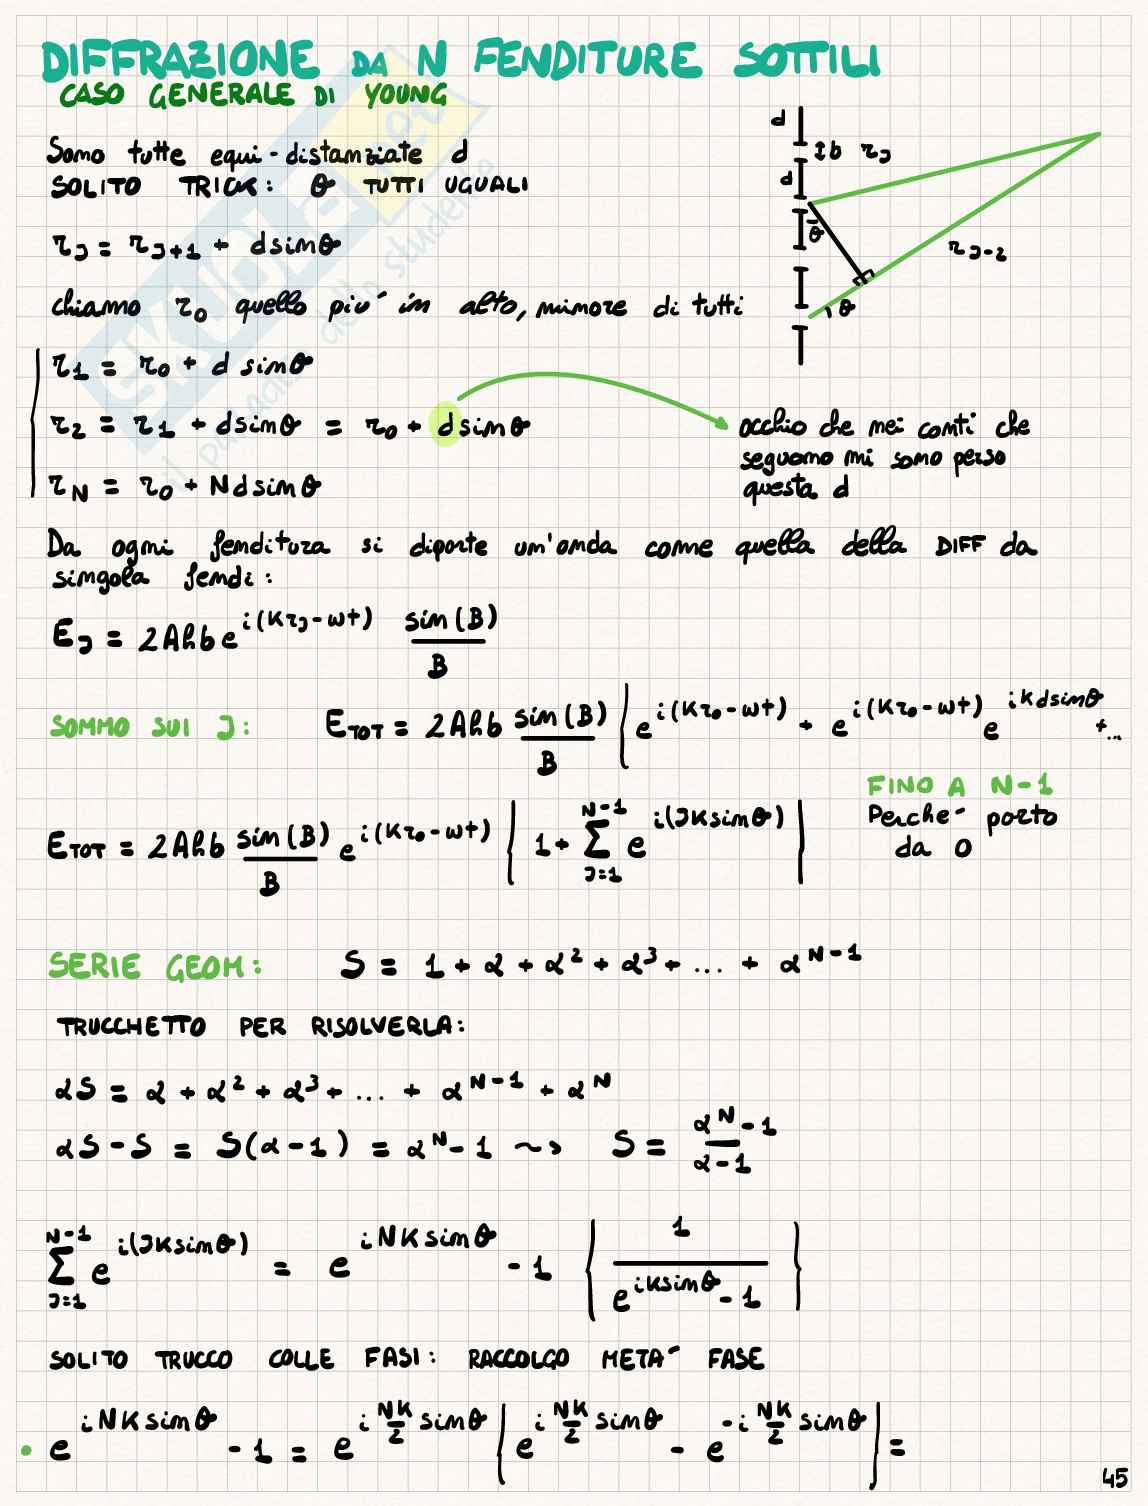 DIFFRAZIONE DA N FENDITURE SOTTILI
CASO GENERALE DI YOUNG
Sono tutte equi-distanziate d
SOLITO TRICK: θ TUTTI UGUALI
r_J = r_J+1 + d sinθ
chiamo r_0 quello piu' in alto, minore di tutti
r_1 = r_0 + d sinθ
r_2 = r_1 + d sinθ = r_0 + d sinθ
r_N = r_0 + N d sinθ
d
↕b r_J
d
θ
r_J-2
θ
occhio che nei conti che
seguono mi sono perso
questa d
Da ogni fenditura si diparte un'onda come quella della DIFF da
singola fendi:
E_J = 2Ahb e^i(Kr_J-ωt) sin(B)/B
SOMMO SUI J: E_TOT = 2Ahb sin(B)/B { e^i(Kr_0-ωt) + e^i(Kr_0-ωt) e^iKd sinθ + ...
FINO A N-1
Perche' parto
da 0
E_TOT = 2Ahb sin(B)/B e^i(Kr_0-ωt) { 1 + Σ_J=1^N-1 e^i(JK sinθ) }
SERIE GEOM: S = 1 + α + α² + α³ + ... + α^N-1
TRUCCHETTO PER RISOLVERLA:
αS = α + α² + α³ + ... + α^N-1 + α^N
αS - S = S(α-1) = α^N - 1 ~> S = α^N-1/α-1
Σ_J=1^N-1 e^i(JK sinθ) = e^iNK sinθ - 1 { 1/e^iK sinθ - 1 }
SOLITO TRUCCO COLLE FASI: RACCOLGO META' FASE
• e^iNK sinθ - 1 = e^i NK/2 sinθ [ e^i NK/2 sinθ - e^-i NK/2 sinθ ] =
45
SKUOLA.net
il portale dello studente